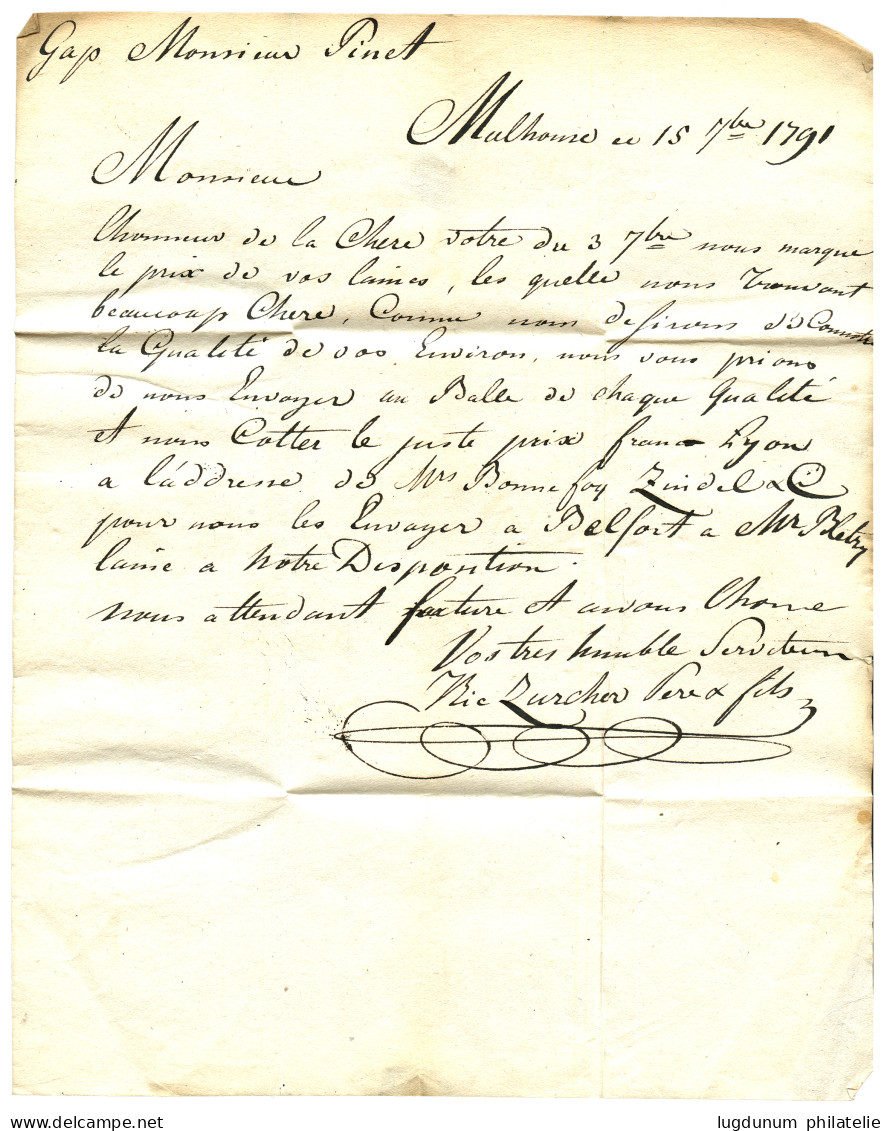 Gap Monsieur Pinet
Mulhouse ce 15 7bre 1791
Monsieur
Lhonneur de la Chere votre du 3 7bre nous marque
le prix de vos laines, les quelle nous trouvont
beaucoup Chere, Comme nous desirons de Connoitre
la Qualité de vos Environ, nous vous prions
de nous Envoyer un Balle de chaque Qualité
et nous Cotter le juste prix franc Lyon
a l'addresse de Mrs Bonnefoy Zindel & Cie
pour nous les Envoyer a Belfort a Mr Bletry
laine a Notre Disposition.
nous attendant facture et avons Lhone
Vos tres humble Serviteur
Zurcher Pere & fils
lugdunum philatelie